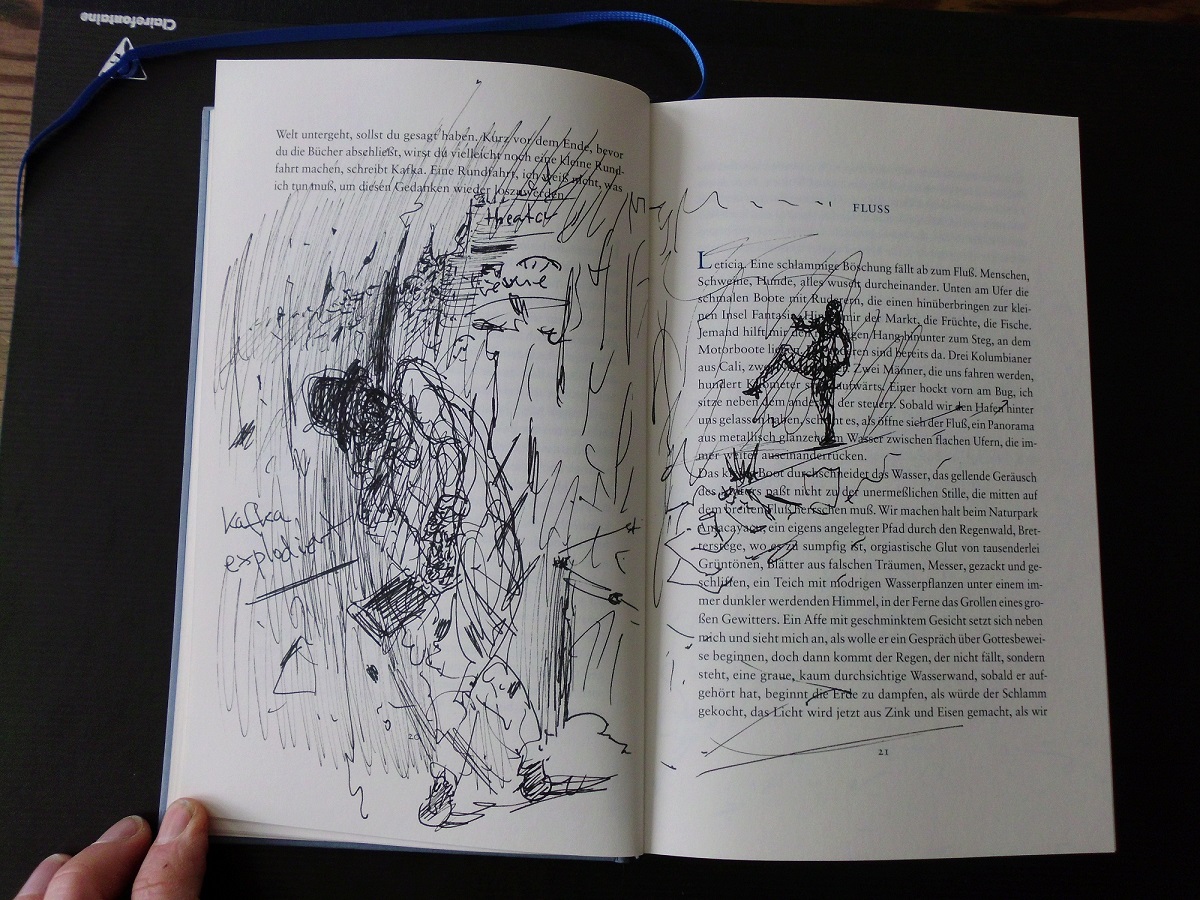 Clairefontaine
Welt untergeht, sollst du gesagt haben. Kurz vor dem Ende, bevor
du die Bücher abschließt, wirst du vielleicht noch eine kleine Rund-
fahrt machen, schreibt Kafka. Eine Rundfahrt, ich weiß nicht, was
ich tun muß, um diesen Gedanken wieder loszuwerden.
theater
Kafka
20
FLUSS
Leticia. Eine schlammige Böschung fällt ab zum Fluß. Menschen,
Schweine, Hunde, alles wuselt durcheinander. Unten am Ufer die
schmalen Boote mit Ruderern, die einen hinüberbringen zur klei-
nen Insel Fantasia. Hinter mir der Markt, die Früchte, die Fische.
Jemand hilft mir den Hang hinunter zum Steg, an dem
Motorboote sind bereits da. Drei Kolumbianer
aus Cali, Zwei Männer, die uns fahren werden,
hundert Kilometer aufwärts. Einer hockt vorn am Bug, ich
sitze neben dem anderen, der steuert. Sobald wir den Hafen hinter
uns gelassen haben, scheint es, als öffne sich der Fluß, ein Panorama
aus metallisch glänzendem Wasser zwischen flachen Ufern, die im-
mer weiter auseinanderrücken.
Das kleine Boot durchschneidet das Wasser, das gellende Geräusch
des Motors paßt nicht zu der unermeßlichen Stille, die mitten auf
dem breiten Fluß herrschen muß. Wir machen halt beim Naturpark
ein eigens angelegter Pfad durch den Regenwald, Bret-
terstege, wo es zu sumpfig ist, orgiastische Glut von tausenderlei
Grüntönen, Blätter aus falschen Träumen, Messer, gezackt und ge-
schliffen, ein Teich mit modrigen Wasserpflanzen unter einem im-
mer dunkler werdenden Himmel, in der Ferne das Grollen eines gro-
ßen Gewitters. Ein Affe mit geschminktem Gesicht setzt sich neben
mich und sieht mich an, als wolle er ein Gespräch über Gottesbewei-
se beginnen, doch dann kommt der Regen, der nicht fällt, sondern
steht, eine graue, kaum durchsichtige Wasserwand, sobald er auf-
gehört hat, beginnt die Erde zu dampfen, als würde der Schlamm
gekocht, das Licht wird jetzt aus Zink und Eisen gemacht, als wir
21